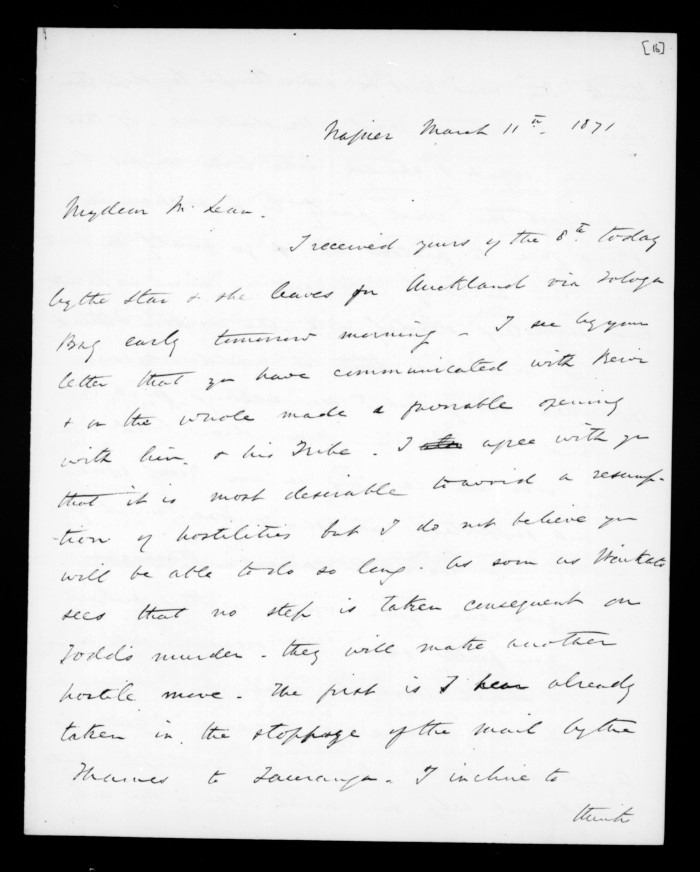 [16]
Napier March 11th. 1871
My dear McLean.
I received yours of the 8th. today
by the Star & she leaves for Auckland via Tologa
Bay early tomorrow morning - I see by your
letter that you have communicated with Rewi
& on the whole made a favorable opening
with him. & his Tribe. I agree with you
that it is most desirable to avoid a resump-
-tion of hostilities but I do not believe you
will be able to do so long. As soon as Waikato
sees that no step is taken consequent on
Todd's murder - they will make another
hostile move. The first is I hear already
taken in the stoppage of the mail by the
Thames to Tauranga. I incline to
think